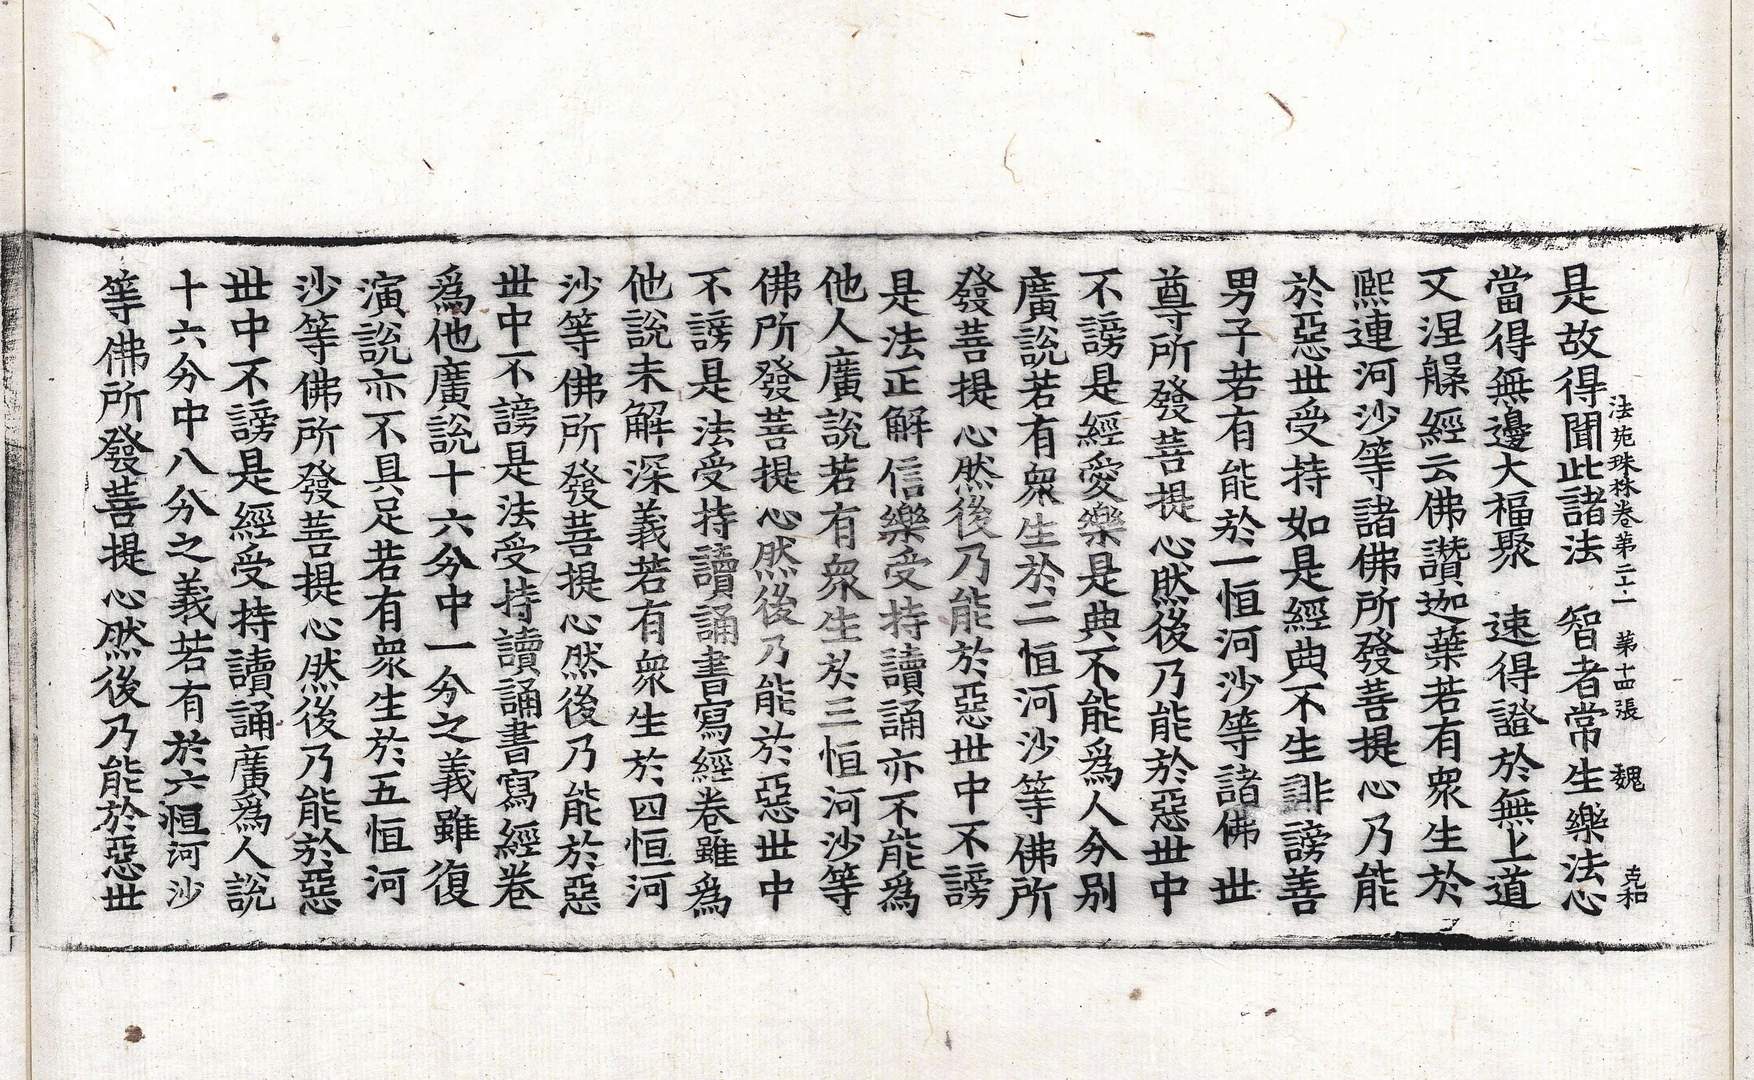 法苑珠林卷第二十一　第十四張　魏　克和
是故得聞此諸法　智者常生樂法心
當得無邊大福聚　速得證於無上道
又涅槃經云佛讚迦葉若有眾生於
熈連河沙等諸佛所發菩提心乃能
於惡世受持如是經典不生誹謗善
男子若有能於一恒河沙等諸佛世
尊所發菩提心然後乃能於惡世中
不謗是經愛樂是典不能爲人分別
廣說若有衆生於二恒河沙等佛所
發菩提心然後乃能於惡世中不謗
是法正解信樂受持讀誦亦不能爲
他人廣說若有衆生於三恒河沙等
佛所發菩提心然後乃能於惡世中
不謗是法受持讀誦書寫經卷雖爲
他說未解深義若有衆生於四恒河
沙等佛所發菩提心然後乃能於惡
世中不謗是法受持讀誦書寫經卷
爲他廣說十六分中一分之義雖復
演說亦不具足若有衆生於五恒河
沙等佛所發菩提心然後乃能於惡
世中不謗是經受持讀誦廣爲人說
十六分中八分之義若有於六恒河沙
等佛所發菩提心然後乃能於惡世